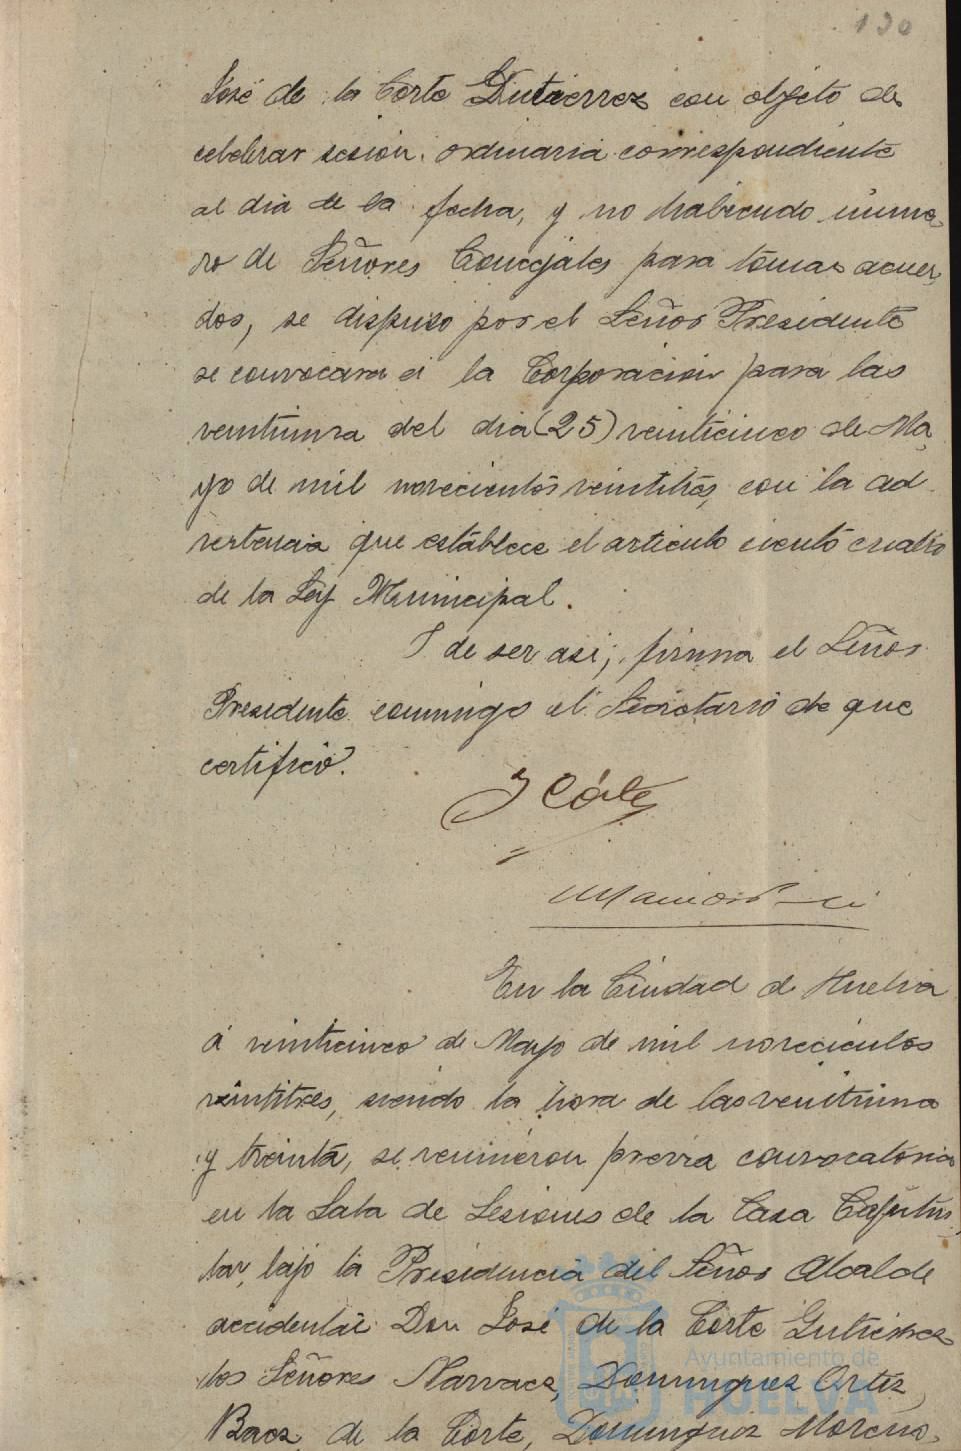 130
José de la Corte Gutierrez con objeto de
celebrar sesion ordinaria correspondiente
al dia de la fecha, y no habiendo nume-
ro de Señores Concejales para tomar acuer-
dos, se dispuso por el Señor Presidente
se convocara á la Corporacion para las
veintiuna del dia (25) veinticinco de Ma-
yo de mil novecientos veintitres, con la ad-
vertencia que establece el articulo ciento cuatro
de la Ley Municipal.
Y de ser asi, firma el Señor
Presidente conmigo el Secretario de que
certifico.
J Corte
En la Ciudad de Huelva
á veinticinco de Mayo de mil novecientos
veintitres, siendo la hora de las veintiuna
y treinta, se reunieron previa convocatoria
en la Sala de Sesiones de la Casa Capitu-
lar, bajo la Presidencia del Señor Alcalde
accidental Don José de la Corte Gutierrez
los Señores Narvaez, Dominguez Ortiz,
Baez, de la Corte, Dominguez Moreno,
Ayuntamiento de
HUELVA